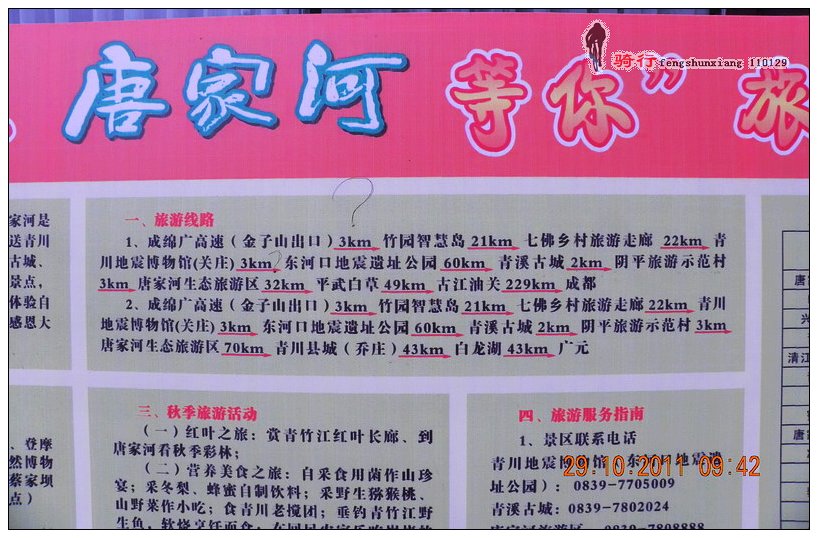 唐家河 等你” 旅
骑行 fengshunxiang 110129
家河是
送青川
古城、
景点，
体验自
感恩大
一、旅游线路
1、成绵广高速（金子山出口）3km 竹园智慧岛 21km 七佛乡村旅游走廊 22km 青
川地震博物馆(关庄) 3km 东河口地震遗址公园 60km 青溪古城 2km 阴平旅游示范村
3km 唐家河生态旅游区 32km 平武白草 49km 古江油关 229km 成都
2、成绵广高速（金子山出口）3km 竹园智慧岛 21km 七佛乡村旅游走廊 22km 青
川地震博物馆(关庄) 3km 东河口地震遗址公园 60km 青溪古城 2km 阴平旅游示范村 3km
唐家河生态旅游区 70km 青川县城（乔庄）43km 白龙湖 43km 广元
、登摩
然博物
蔡家坝
点）
三、秋季旅游活动
（一）红叶之旅：赏青竹江红叶长廊、到
唐家河看秋季彩林；
（二）营养美食之旅：自采食用菌作山珍
宴；采冬梨、蜂蜜自制饮料；采野生猕猴桃、
山野菜作小吃；食青川老搅团；垂钓青竹江野
生鱼，软烧烹饪而食；
四、旅游服务指南
1、景区联系电话
青川地震博物馆（东河口地震遗
址公园）：0839-7705009
青溪古城：0839-7802024
唐家河旅游区：0839-7808888
29.10.2011 09:42
唐
兴
清江
唐